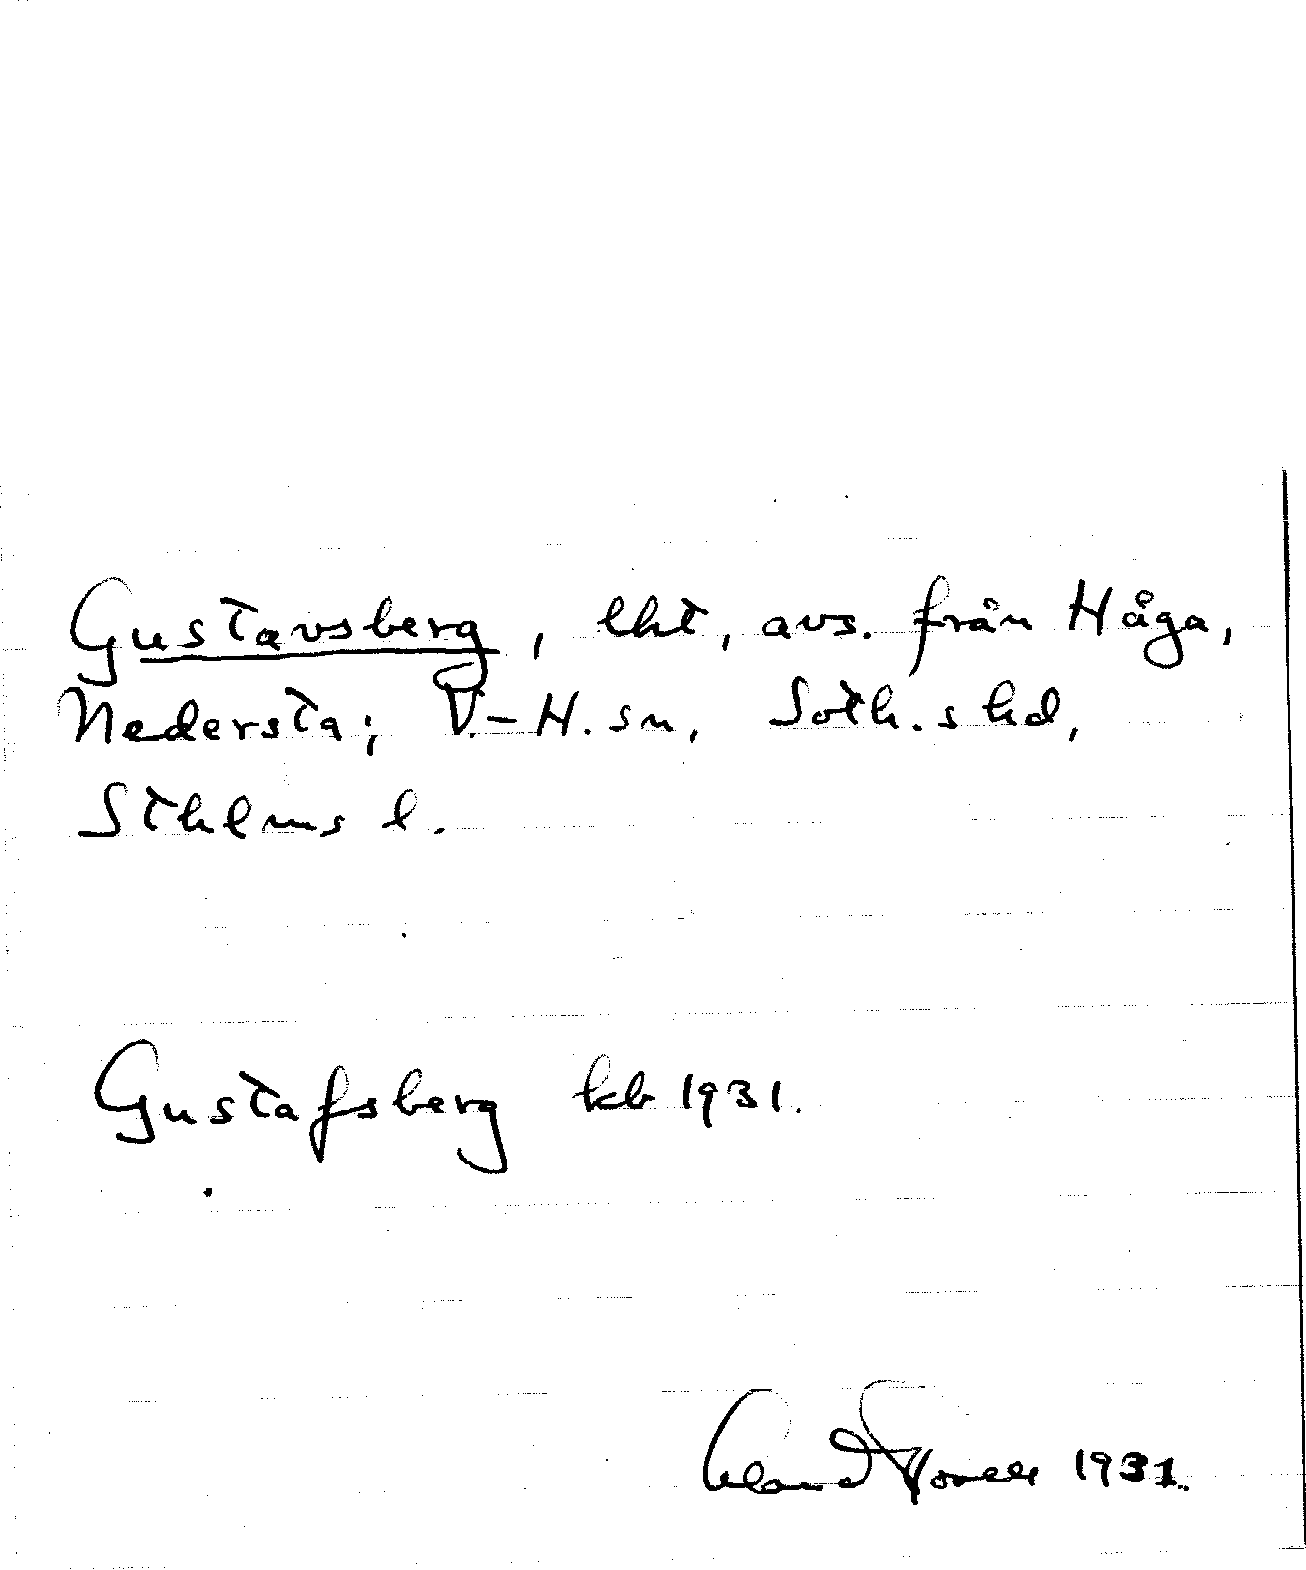 Gustavsberg, lht, avs. från Håga,
Nedersta; V.-H. sn, Soth.s hd,
Sthlms l.
Gustafsberg kb 1931.
1931.